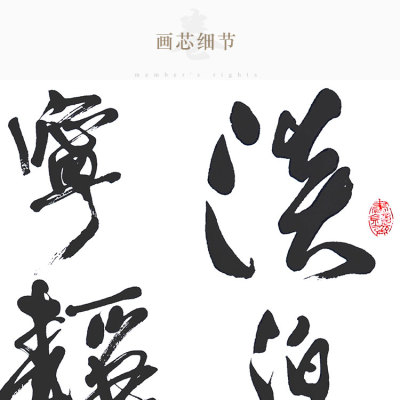 画芯细节
member's rights
淡泊
寧靜